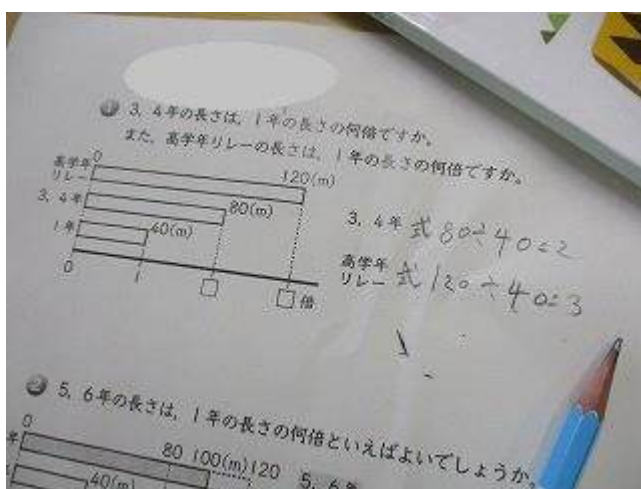 1 3, 4年の長さは, 1年の長さの何倍ですか。
また, 高学年リレーの長さは, 1年の長さの何倍ですか。
0
高学年
リレー
120(m)
3, 4年
80(m)
1年
40(m)
0 1 □ □倍
3, 4年 式 80÷40=2
高学年
リレー 式 120÷40=3
2 5, 6年の長さは, 1年の長さの何倍といえばよいでしょうか。
0
年
80 100(m) 120
40(m)
5, 6年